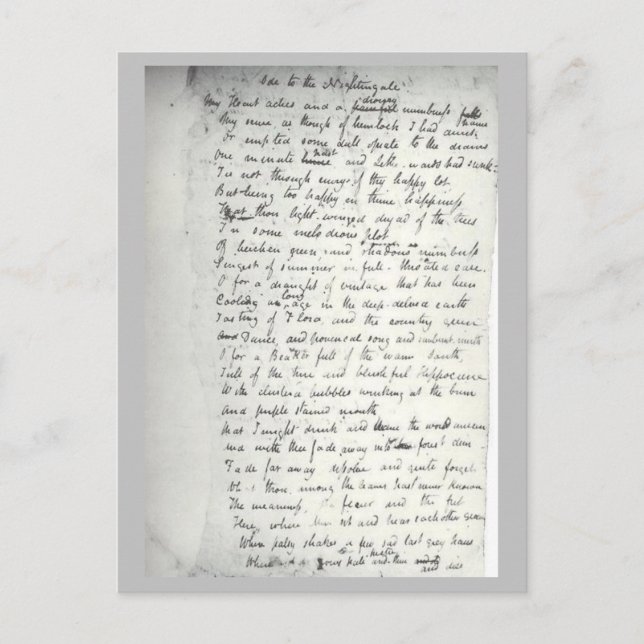 Ode to the Nightingale
My Heart aches and a drowsy painful numbness falls
My sense as though of hemlock I had drunk
Or emptied some dull opiate to the drains
One minute past and Lethe-wards had sunk-
Tis not through envy of thy happy lot
But being too happy in thine happiness
That thou light-winged dryad of the trees
In some melodious plot
Of beichen green and shadows numberless
Singest of summer in full-throated ease.
O for a draught of vintage that has been
Cooling an long age in the deep-delved earth
Tasting of Flora and the country green
And Dance, and provencal song and sunburnt mirth
O for a Beaker full of the warm south
Full of the true and blushful Hippocrene
With cluster'd bubbles winking at the brim
And purple stained mouth
That I might drink and leave the world unseen
And with thee fade away into the forest dim
Fade far away dissolve and quite forget
What thou among the leaves hast never known
The weariness, the fever and the fret
Here, where Men sit and hear each other groan
Where palsy shakes a few sad last grey hairs
Where youth grows pale and thin and old and dies